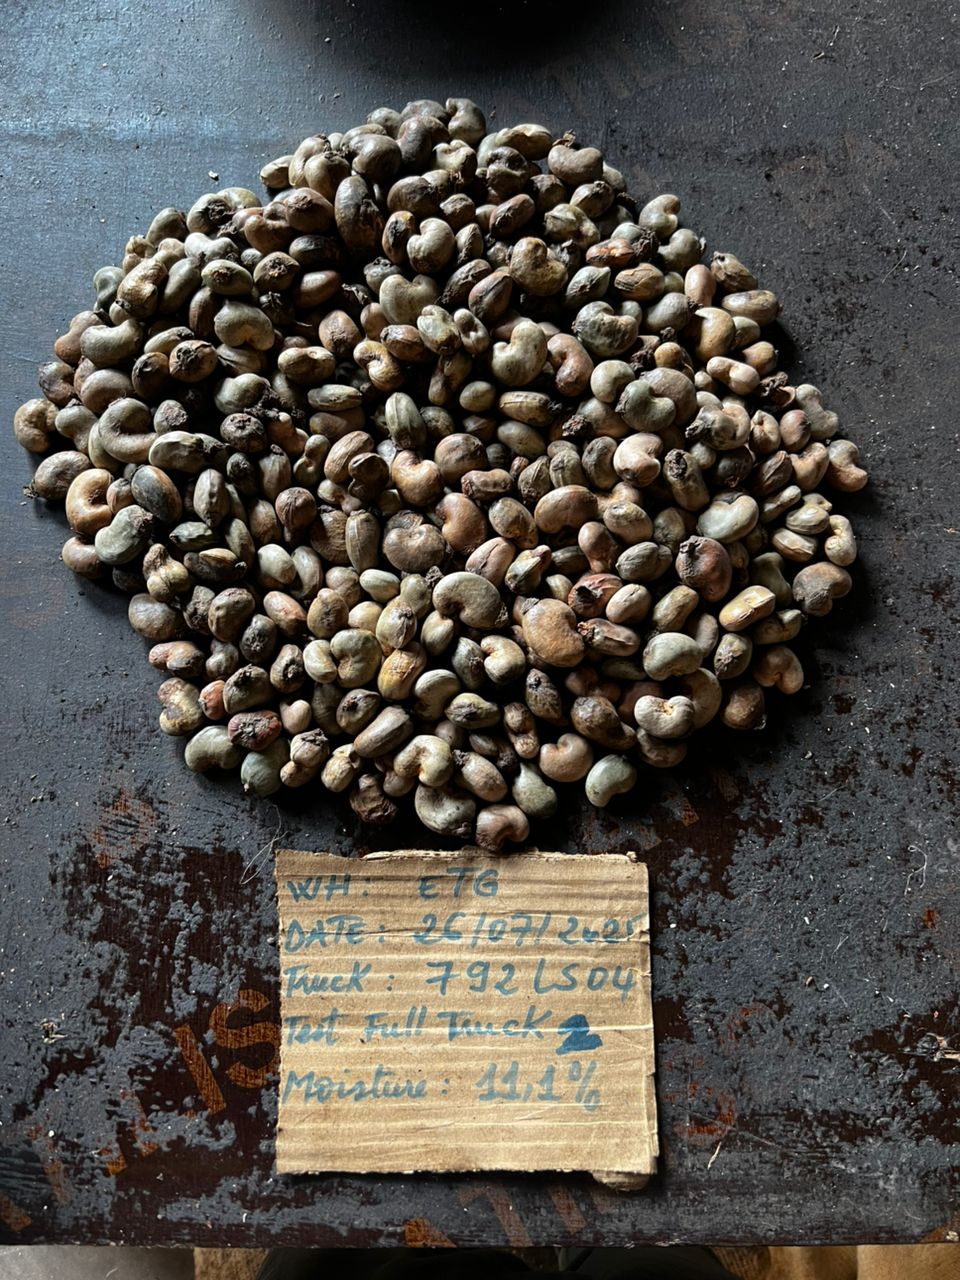 WH: ETG
DATE: 26/07/2025
Truck: 792 LS04
Test Full Truck 2
Moisture: 11,1%